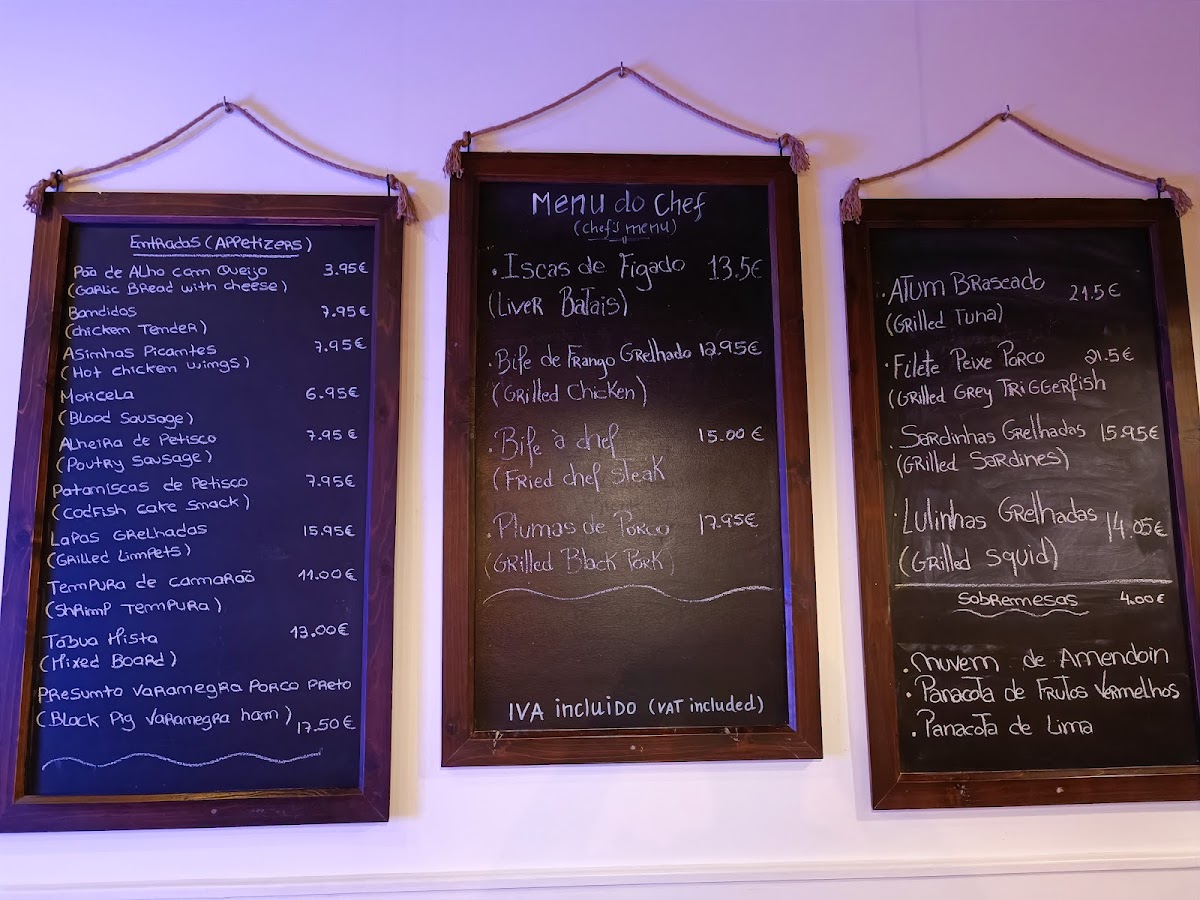 Entradas (Appetizers)
Pão de Alho com Queijo 3.95€
(Garlic Bread with cheese)
Bandidos 7.95€
(chicken Tender)
Asinhas Picantes 7.95€
(Hot chicken wings)
Morcela 6.95€
(Blood Sausage)
Alheira de Petisco 7.95€
(Poutry Sausage)
Pataniscas de Petisco 7.95€
(codfish cake smack)
Lapas Grelhadas 15.95€
(Grilled Limpets)
Tempura de camarão 11.00€
(Shrimp Tempura)
Tábua Mista 13.00€
(Mixed Board)
Presunto Varanegra Porco Preto
(Black Pig Varanegra ham) 17.50€
Menu do Chef
(chef's menu)
· Iscas de Figado 13.5€
(Liver Batais)
· Bife de Frango Grelhado 12.95€
(Grilled Chicken)
· Bife à chef 15.00€
(Fried chef steak
· Plumas de Porco 17.95€
(Grilled Black Pork)
IVA incluido (VAT included)
· Atum Braseado 21.5€
(Grilled Tuna)
· Filete Peixe Porco 21.5€
(Grilled Grey Triggerfish
· Sardinhas Grelhadas 15.95€
(Grilled Sardines)
· Lulinhas Grelhadas 14.05€
(Grilled squid)
Sobremesas 4.00€
· Nuvem de Amendoin
· Panacota de Frutos Vermelhos
· Panacota de Lima